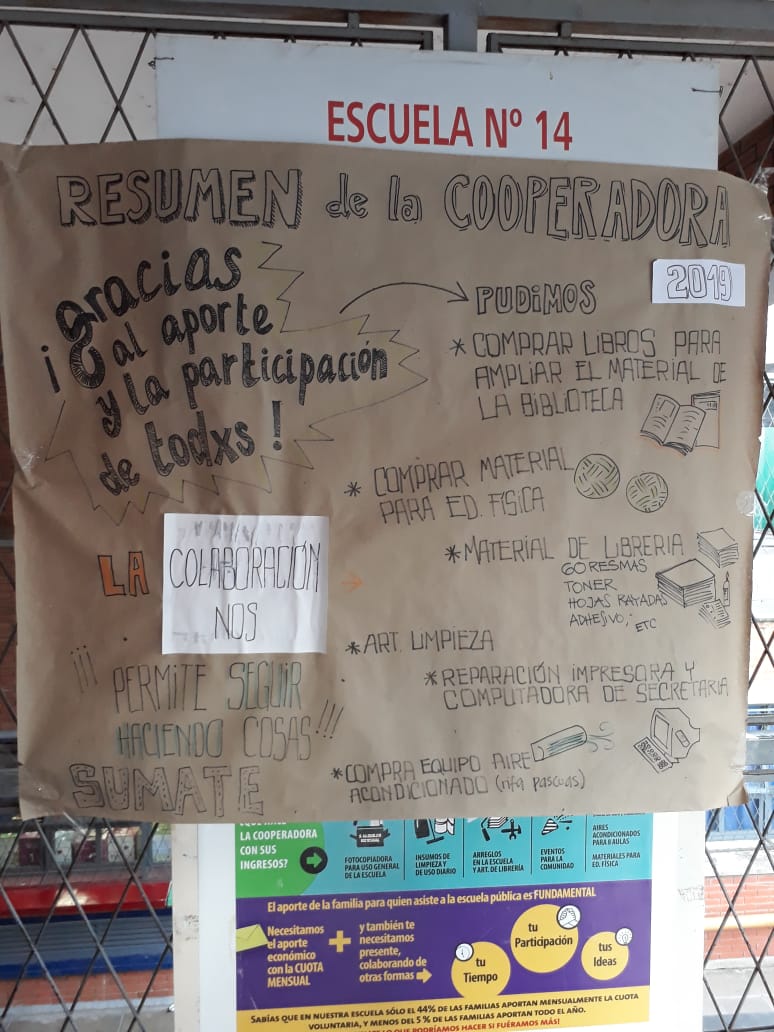 ESCUELA Nº 14
RESUMEN de la COOPERADORA
2019
¡Gracias
al aporte
y la participación
de todxs!
PUDIMOS
* COMPRAR LIBROS PARA
AMPLIAR EL MATERIAL DE
LA BIBLIOTECA
* COMPRAR MATERIAL
PARA ED. FÍSICA
* MATERIAL DE LIBRERIA
60 RESMAS
TONER
HOJAS RAYADAS
ADHESIVO,
ETC
* ART. LIMPIEZA
* REPARACIÓN IMPRESORA Y
COMPUTADORA DE SECRETARIA
* COMPRA EQUIPO AIRE
ACONDICIONADO (rifa pascuas)
LA COLABORACIÓN
NOS
¡¡¡ PERMITE SEGUIR
HACIENDO COSAS !!!
SUMATE
LA COOPERADORA
CON SUS
INGRESOS?
FOTOCOPIADORA
PARA USO GENERAL
DE LA ESCUELA
INSUMOS DE
LIMPIEZA Y
DE USO DIARIO
ARREGLOS
EN LA ESCUELA
Y ART. DE LIBRERÍA
EVENTOS
PARA LA
COMUNIDAD
AIRES
ACONDICIONADOS
PARA 8 AULAS
MATERIALES PARA
ED. FÍSICA
El aporte de la familia para quien asiste a la escuela pública es FUNDAMENTAL
Necesitamos
el aporte
económico
con la CUOTA
MENSUAL
+
y también te
necesitamos
presente,
colaborando de
otras formas
tu
Tiempo
tu
Participación
tus
Ideas
SABÍAS QUE EN NUESTRA ESCUELA SÓLO EL 44% DE LAS FAMILIAS APORTAN MENSUALMENTE LA CUOTA
VOLUNTARIA, Y MENOS DEL 5% DE LAS FAMILIAS APORTAN TODO EL AÑO.
LO QUE PODRÍAMOS HACER SI FUÉRAMOS MÁS!